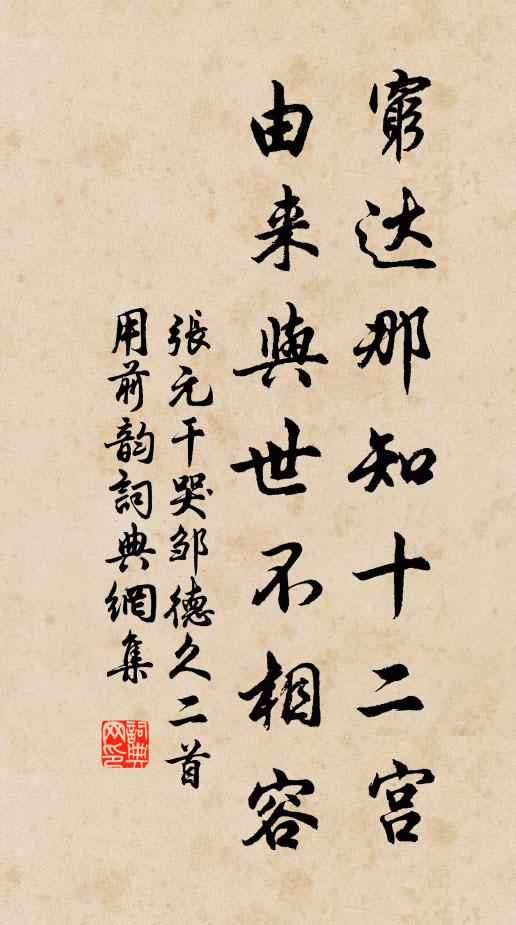 窮达那知十二宫
由来與世不相容
張元干哭邹德久二首
用前韵詞典網集
詞典網印